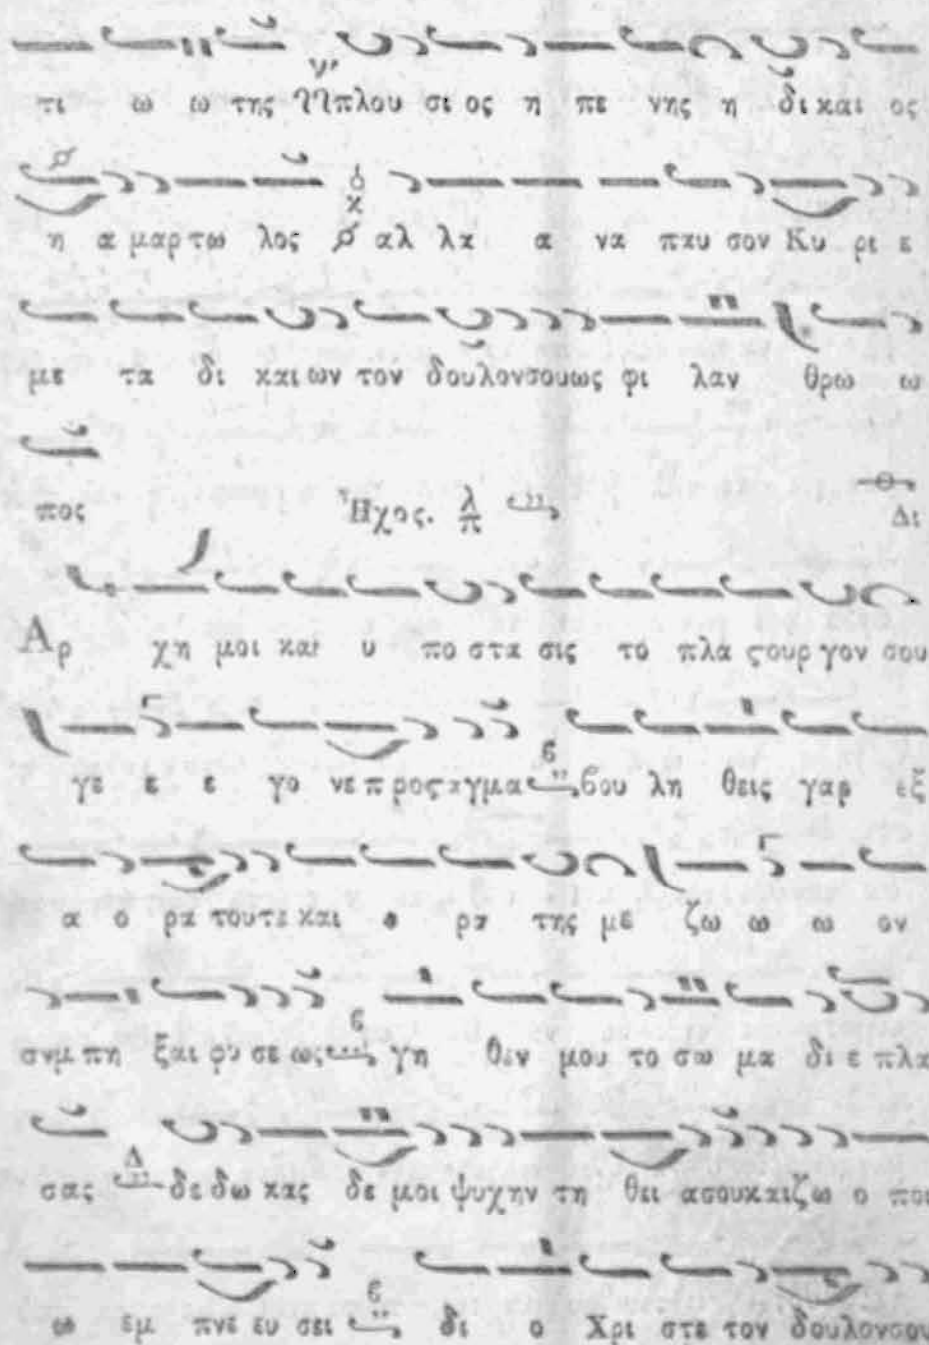 τι ω ω της πλου σι ος η πε νης η δι και ος
η α μαρ τω λος αλ λα α να παυ σον Κυ ρι ε
με τα δι και ων τον δουλονσουως φι λαν θρω ω
πος Ἦχος. λ π Δι
Αρ χη μοι και υ πο στα σις το πλα ςουρ γον σου
γε ε ε γο νε προςαγμα βου λη θεις γαρ εξ
α ο ρα τουτε και ο ρα της με ζω ω ω ον
συμ πη ξαι φυ σε ως γη θεν μου το σω μα δι ε πλα
σας Δ δε δω κας δε μοι ψυχην τη θει ασουκαιζω ο ποι
ω εμ πνε ευ σει δι ο Χρι στε τον δουλονσου